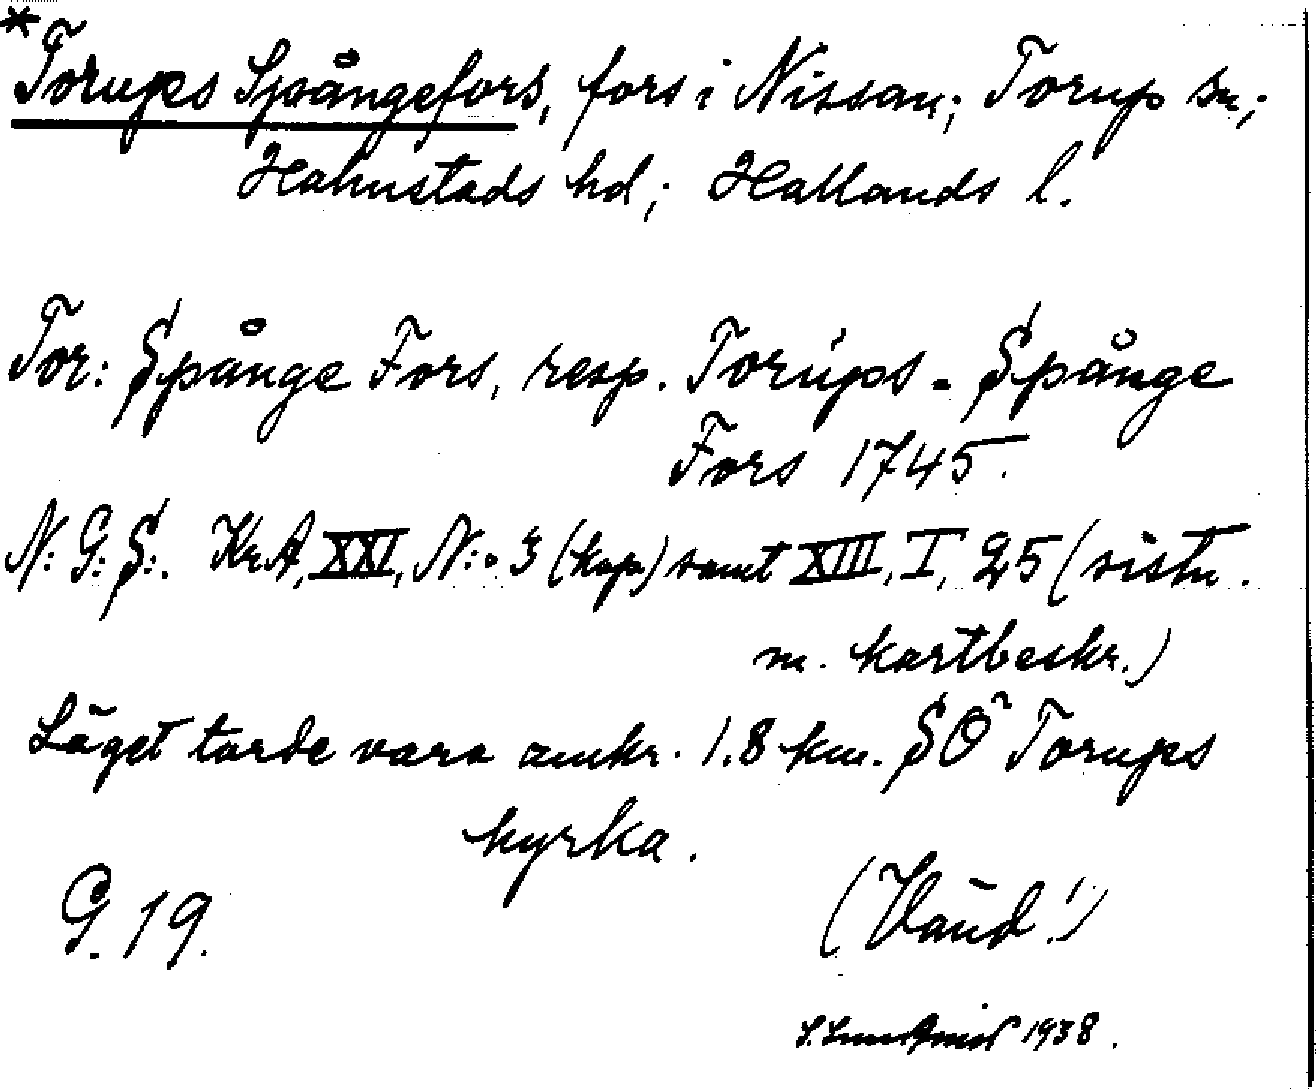 *Torups Spångefors, fors i Nissan; Torup sn;
Halmstads hd; Hallands l.
Tor: Spånge Fors, resp. Torups - Spånge
Fors 1745.
N: G: S:. KrA, XXI, N:o 3 (kop) samt XIII, I, 25 (sistn.
m. kartbeskr.)
Läget torde vara omkr. 1.8 km. SO Torups
kyrka.
G. 19.
1938.